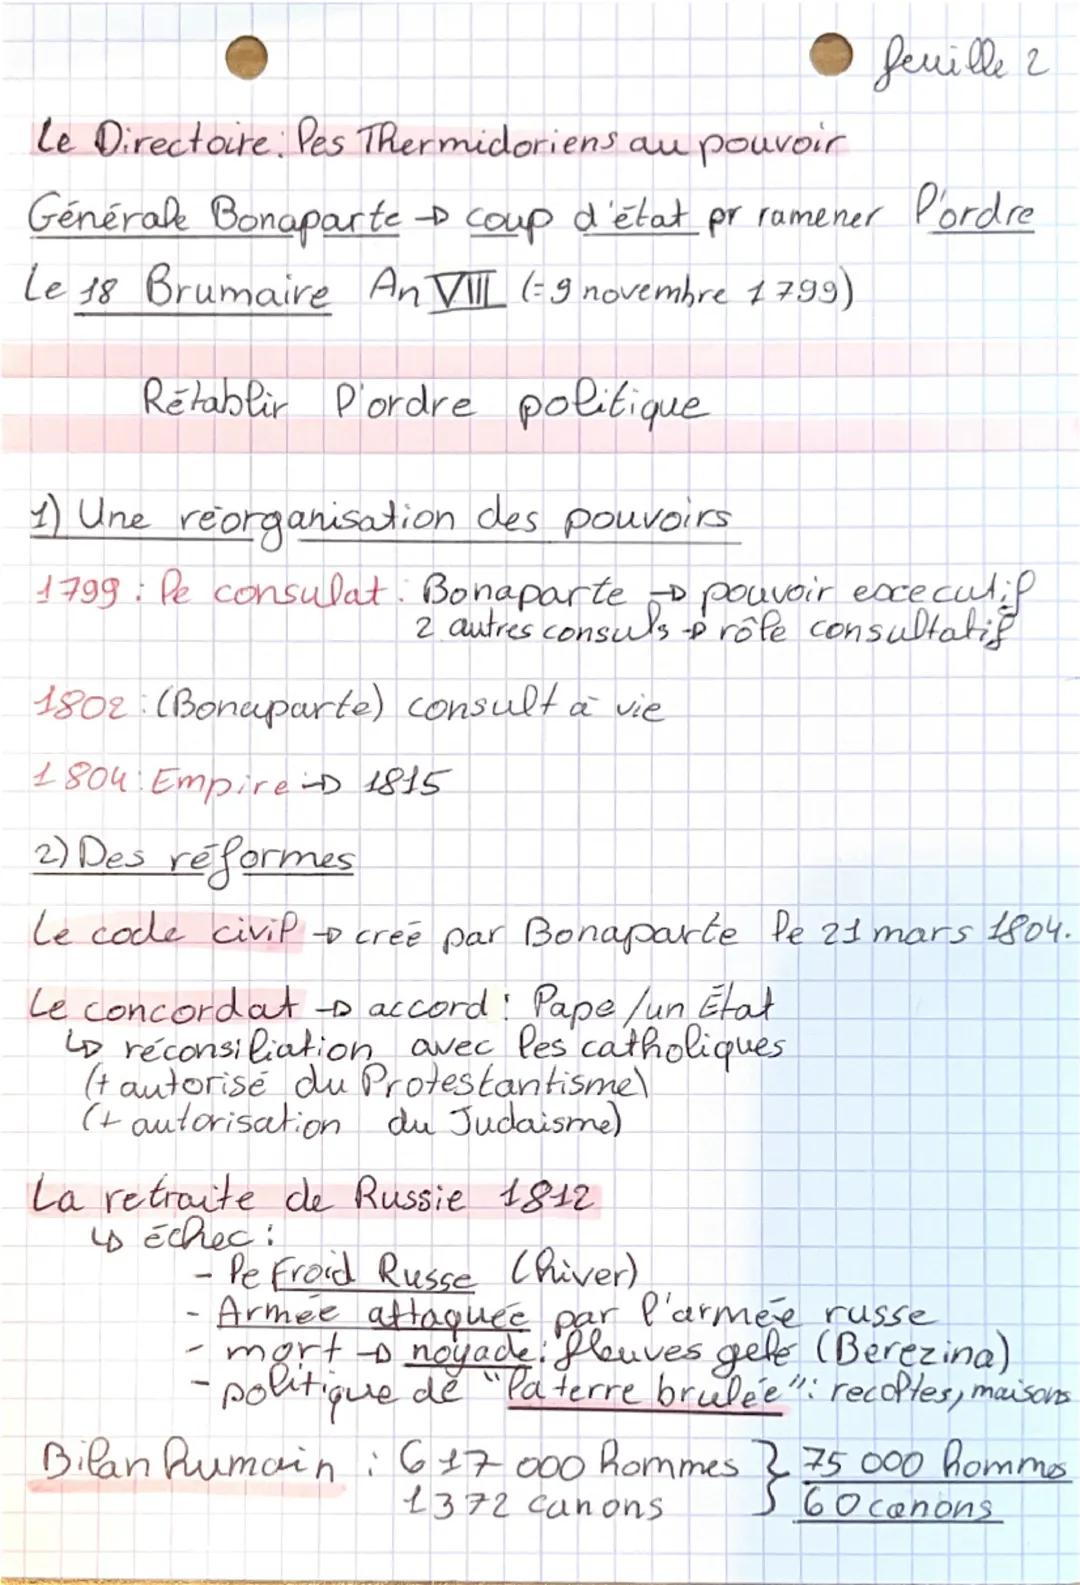 feuille 2
Le Directoire: les Thermidoriens au pouvoir
Générale Bonaparte → coup d'état pr ramener l'ordre
Le 18 Brumaire An VIII (= 9 novembre 1799)
Rétablir l'ordre politique
1) Une réorganisation des pouvoirs
1799 : le consulat : Bonaparte → pouvoir excecutif
2 autres consuls → rôle consultatif
1802 : (Bonaparte) consult à vie
1804 : Empire → 1815
2) Des réformes
Le code civil → creé par Bonaparte le 21 mars 1804.
Le concordat → accord : Pape / un État
↳ réconsiliation avec les catholiques
(+ autorisé du Protestantisme)
(+ autorisation du Judaïsme)
La retraite de Russie 1812
↳ échec :
- le froid Russe (hiver)
- Armée attaquée par l'armée russe
- mort → noyade : fleuves gelé (Berezina)
- politique de "la terre brulée" : recoltes, maisons
Bilan humain : 617 000 hommes } 75 000 hommes
1372 canons } 60 canons